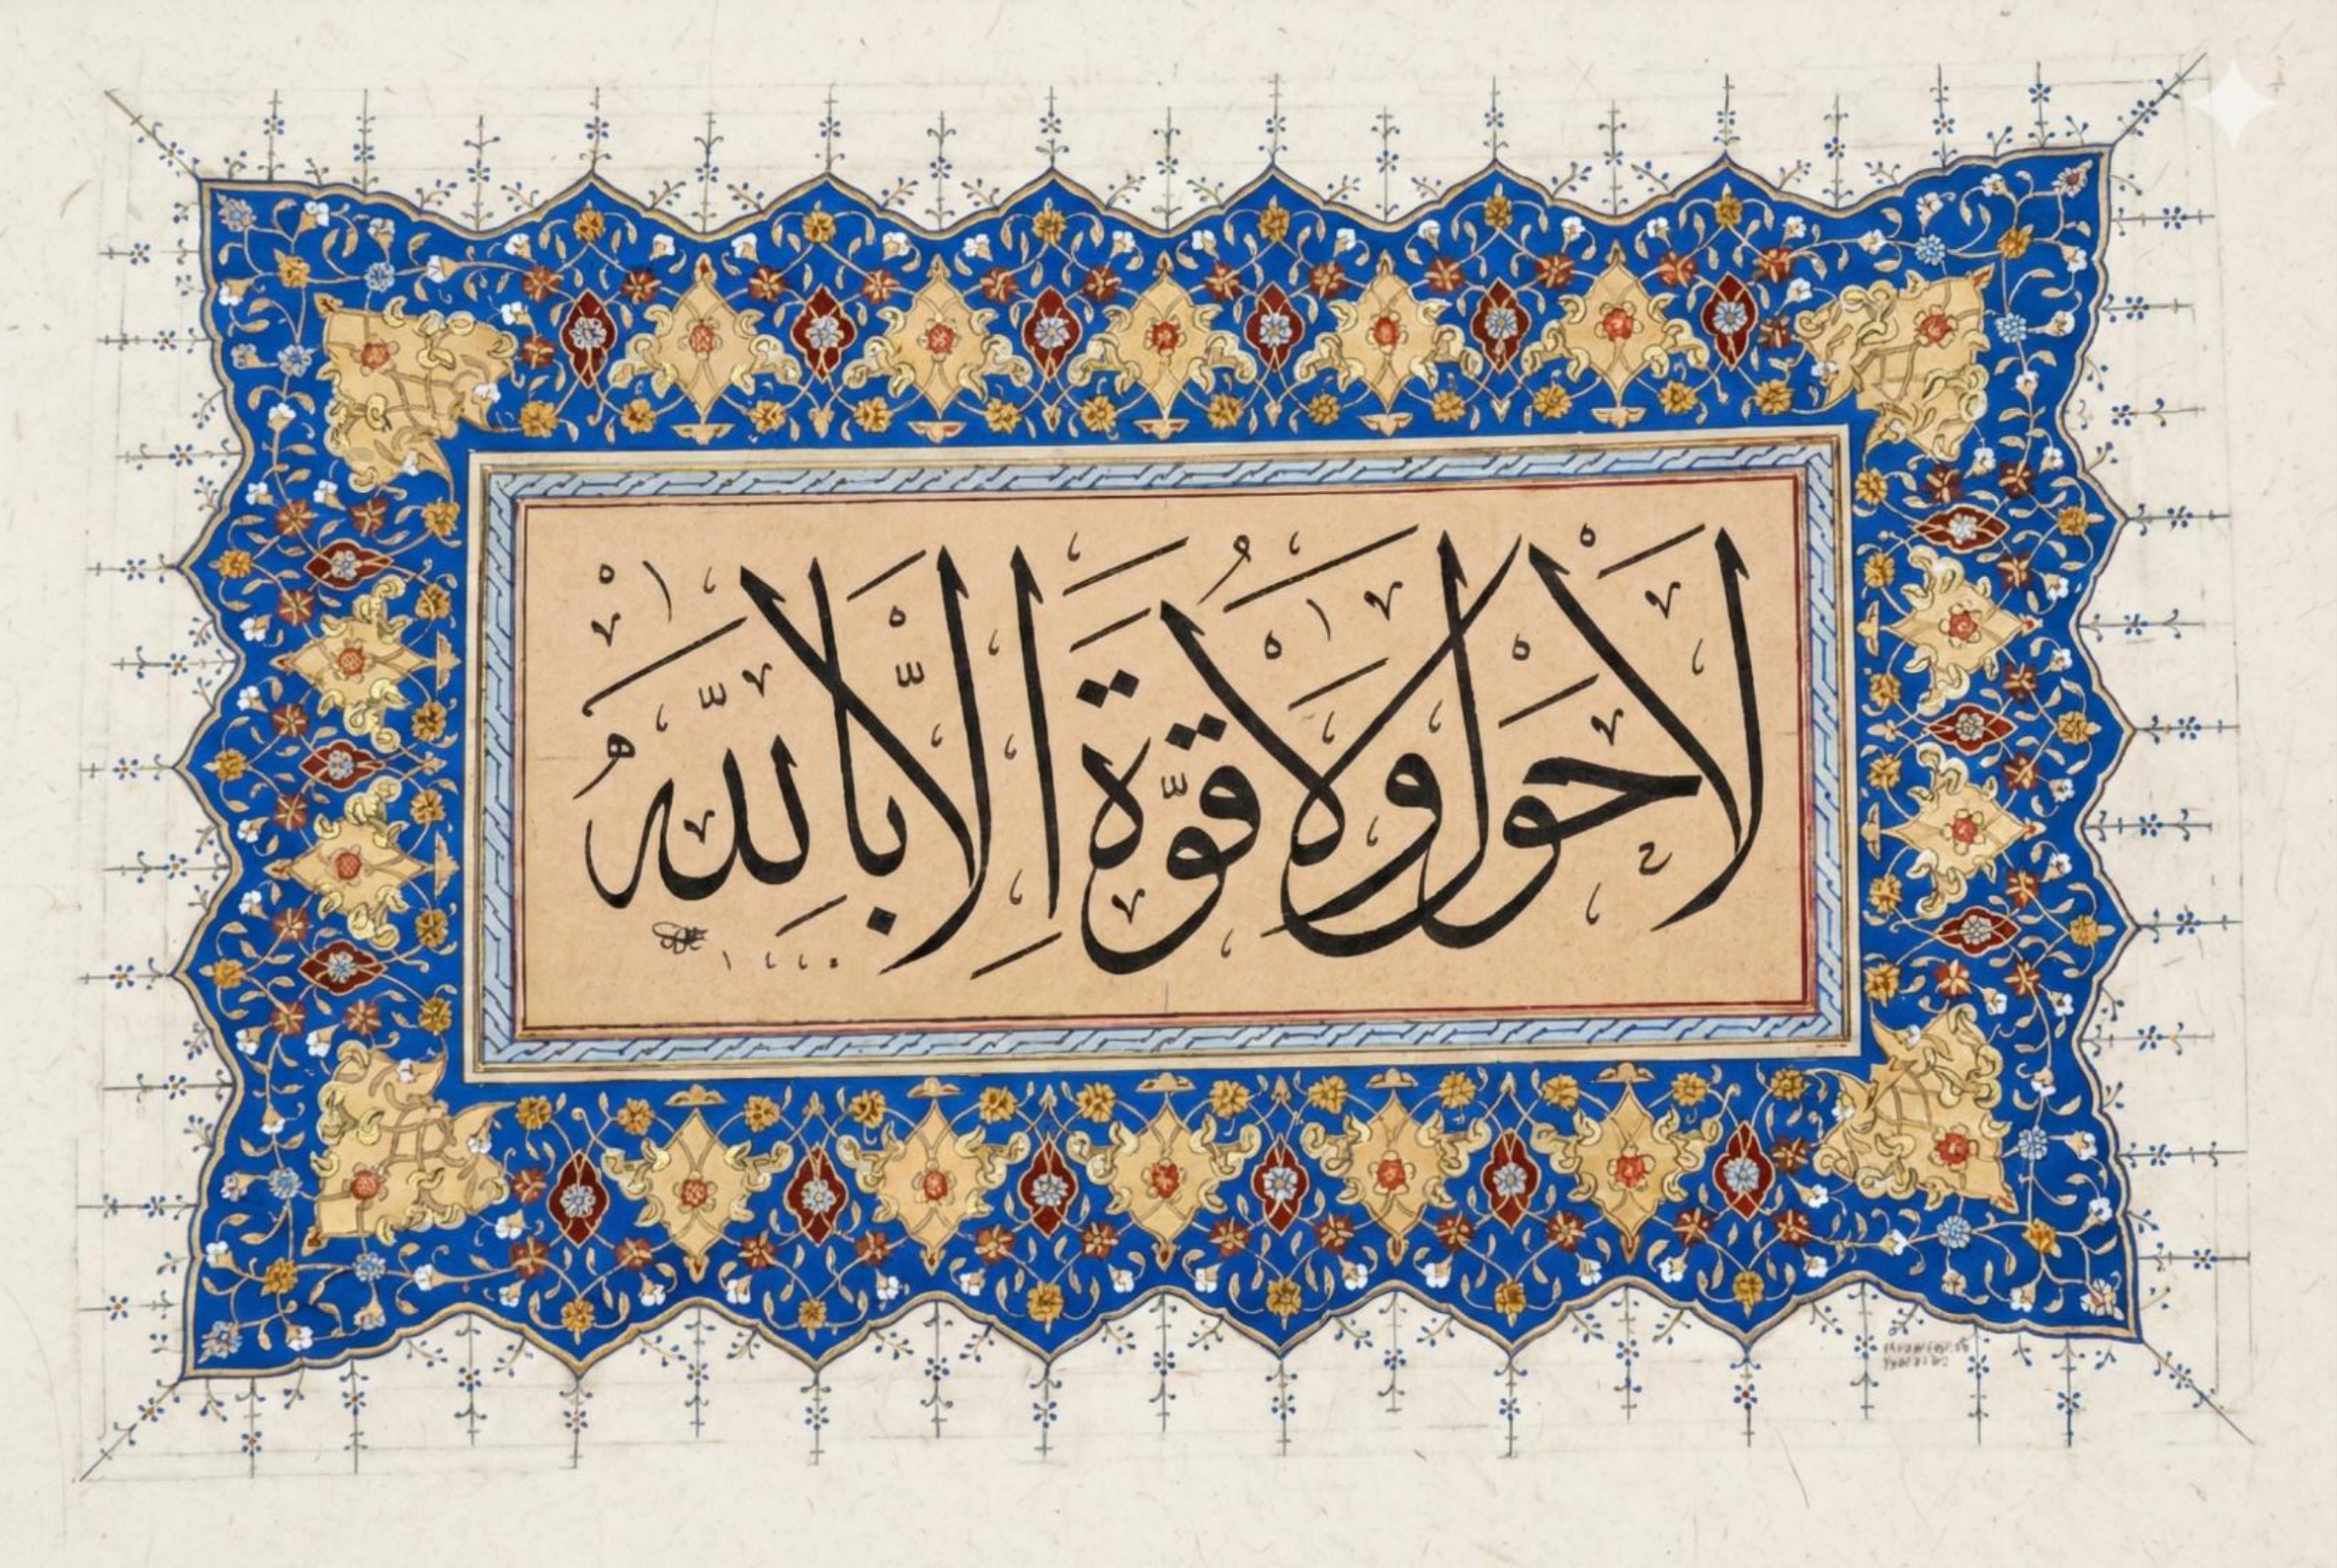 لا حول ولا قوّة الا بالله